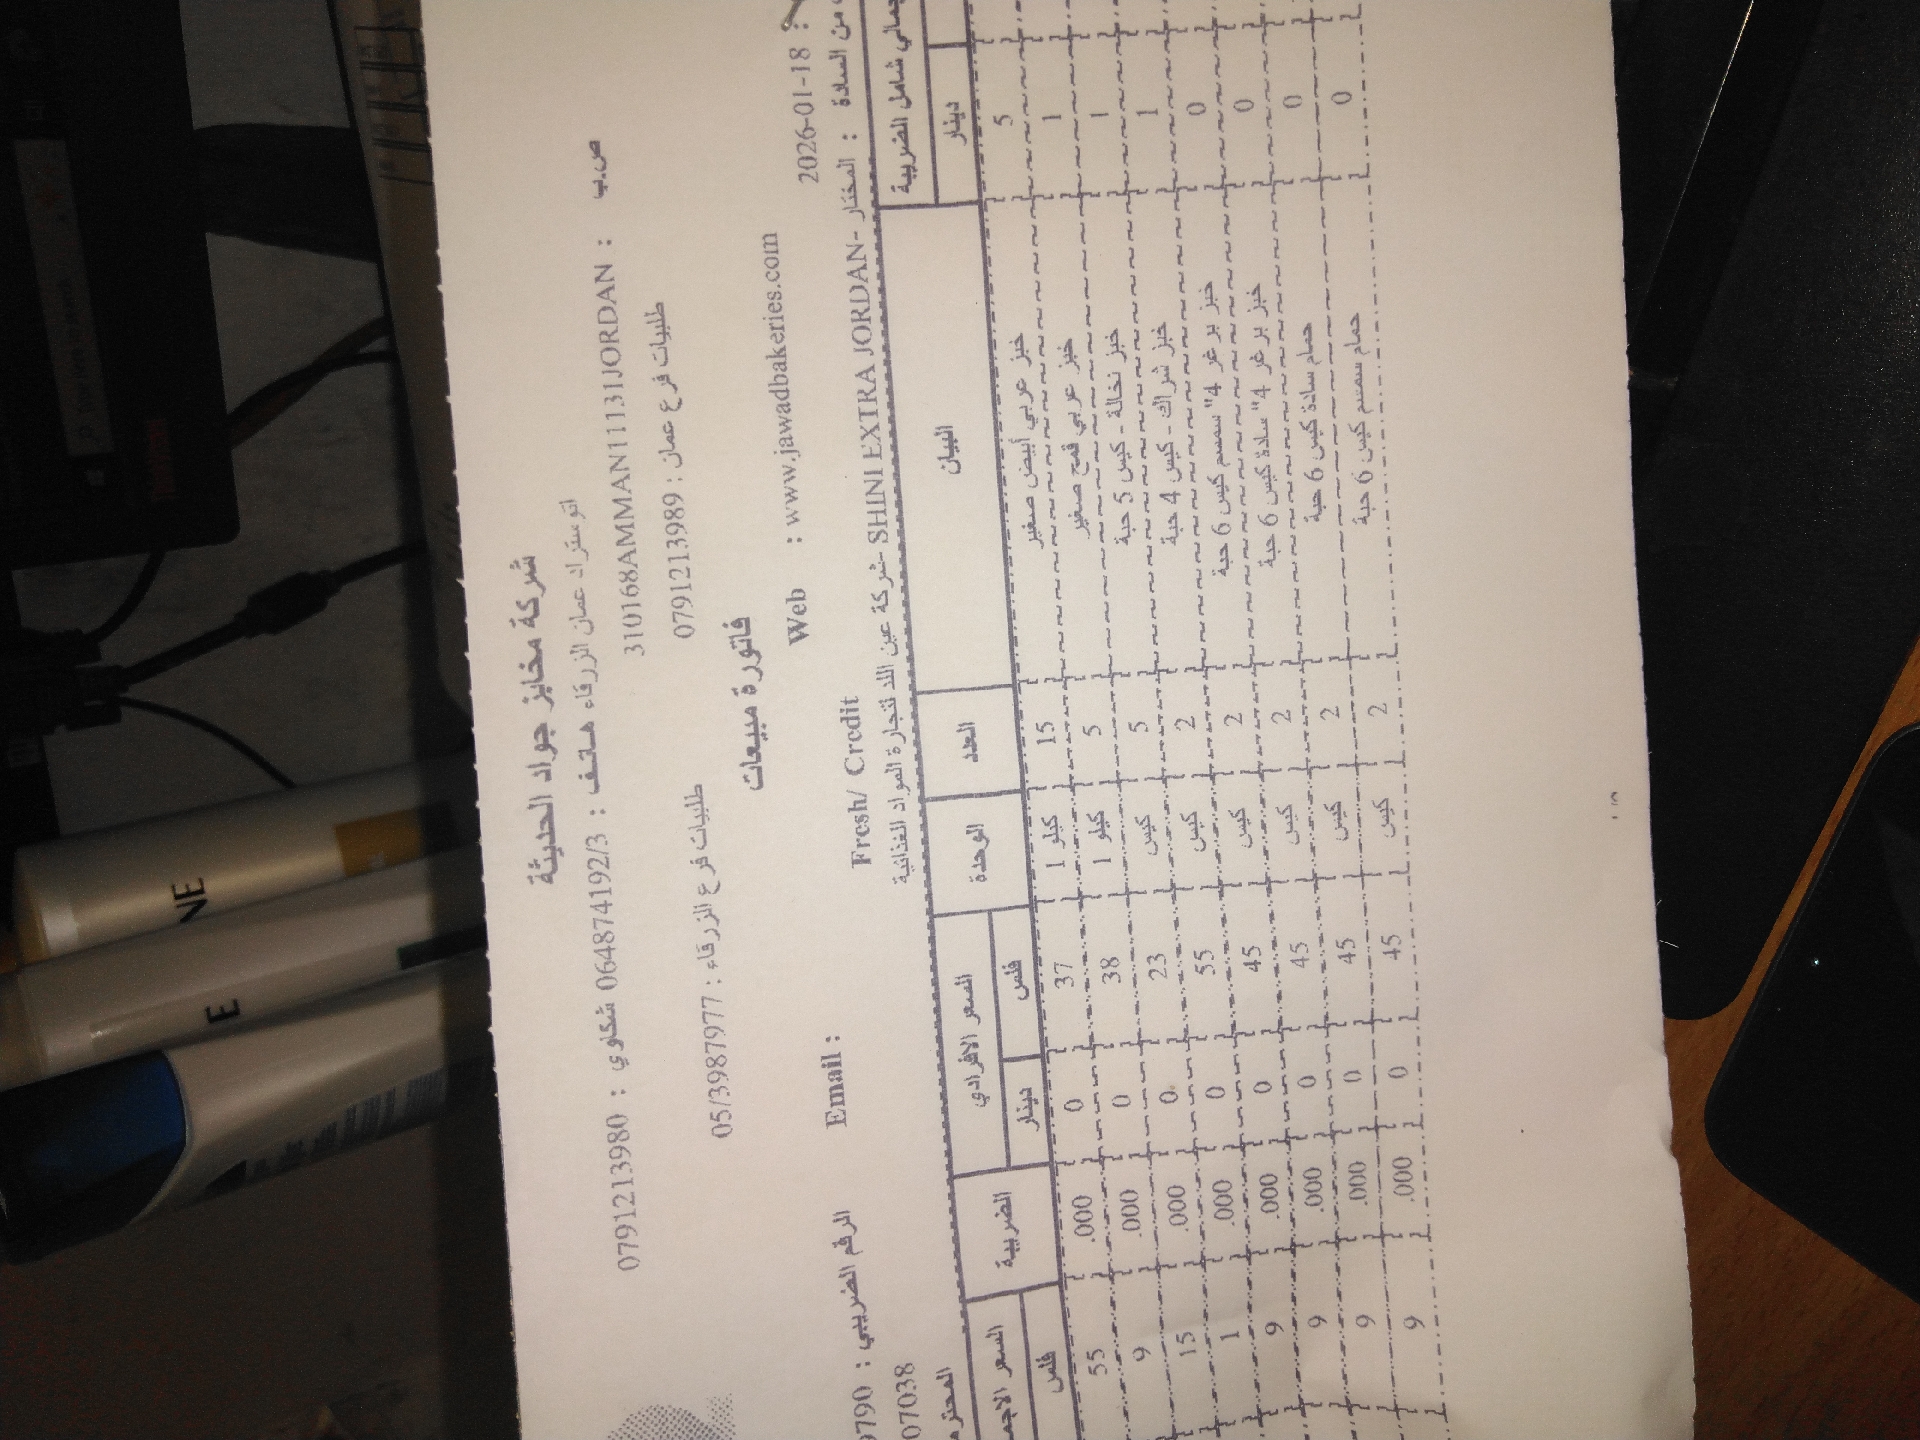 شركة مخابز جواد الحديثة
اتوستراد عمان الزرقاء هاتف : 064874192/3 شكاوي : 0791213980
ص.ب : 310168AMMAN11131JORDAN
طلبيات فرع عمان : 0791213989
طلبيات فرع الزرقاء : 05/3987977
فاتورة مبيعات
2026-01-18 :
Web : www.jawadbakeries.com
Email :
الرقم الضريبي : 9790
Fresh/ Credit
07038
من السادة : المختار -SHINI EXTRA JORDAN -شركة عين اللد لتجارة المواد الغذائية
المحترم
شامل الضريبة البيان العدد الوحدة السعر الافرادي الضريبة السعر
دينار دينار فلس فلس
5 خبز عربي أبيض صغير 15 كيلو 1 37 0 .000 55
1 خبز عربي قمح صغير 5 كيلو 1 38 0 .000 9
1 خبز نخالة - كيس 5 حبة 5 كيس 23 0 .000 15
1 خبز شراك - كيس 4 حبة 2 كيس 55 0 .000 1
0 خبز برغر 4" سمسم كيس 6 حبة 2 كيس 45 0 .000 9
0 خبز برغر 4" سادة كيس 6 حبة 2 كيس 45 0 .000 9
0 حمام سادة كيس 6 حبة 2 كيس 45 0 .000 9
0 حمام سمسم كيس 6 حبة 2 كيس 45 0 .000 9
NE
E